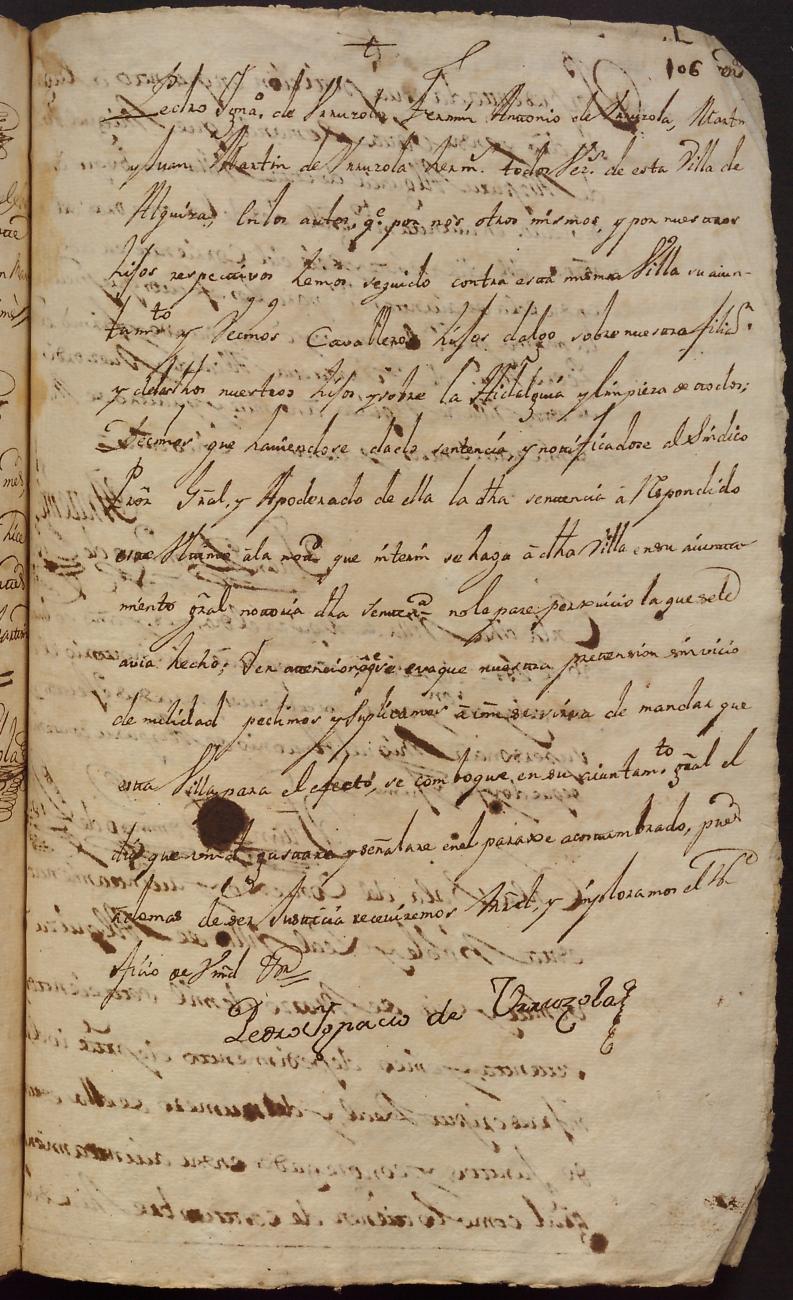 106
Pedro Ygnaº. de Urruzola, Fermin Antonio de Urruzola, Martn
y Juan Martin de Urruzola herms. todos Vezs. de esta Villa de
Alquiza, en los autos, qe. por nos otros mismos, y por nuestros
hijos respectivos hemos seguido contra esta misma Villa su aiun-
tamto y Vecinos Cavalleros hijos dalgo sobre nuestra filion.
y de dichos nuestros hijos y sobre la Hidalguia y limpieza de todos;
Decimos que haviendose dado sentencia, y notificadose al Sindico
Pror Gral, y Apoderado de ella la dha sentencia á Respondido
este Ultimo á la nota que interin se haga á dha Villa en su aiunta-
miento gral notoria dha sentena no le pare perxuicio la que se le
avia hecho; y en atencion á qe. se evaque nuestra pretension sin vicio
de nulidad pedimos y suplicamos á Vm se sirva de mandar que
esta Villa para el efecto, se comboque en su aiuntamto. gral el
dia que Vmd gustare y señalare en el paraxe acostumbrado, pues
ademas de ser Justicia receviremos Mrd, y imploramos el
oficio de Vmd
Pedro Ygnacio de Urruzola